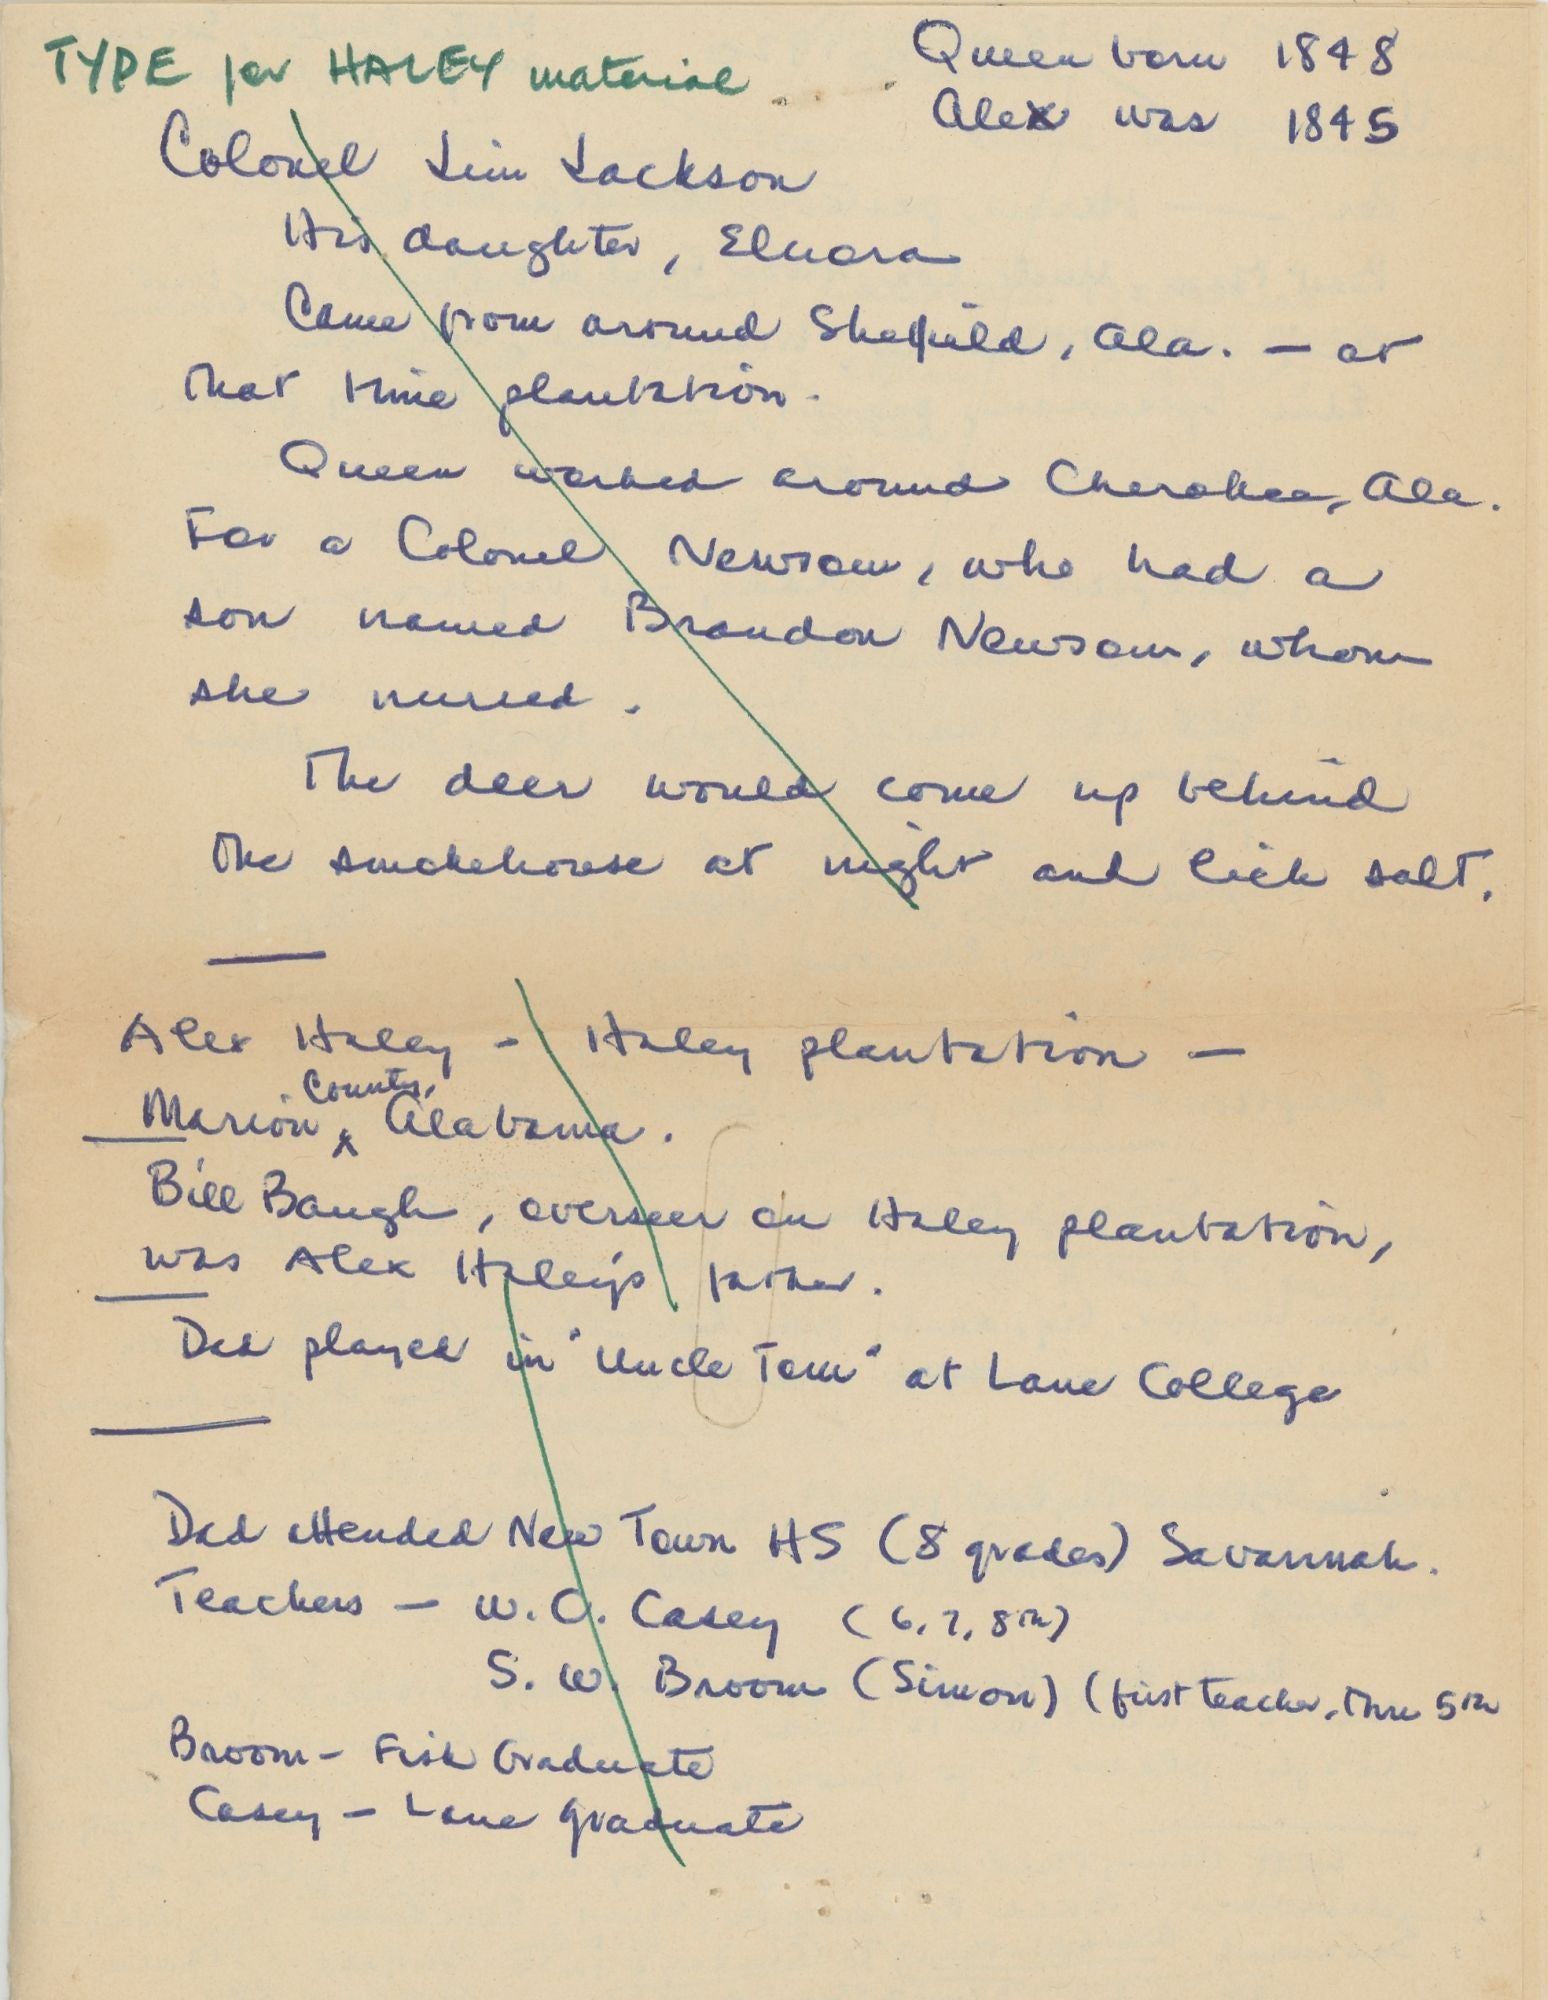 TYPE for HALEY material
Queen born 1848
Alex was 1845
Colonel Jim Jackson
His daughter, Elnora
Came from around Sheffield, Ala. — at
that time plantation.
Queen worked around Cherokee, Ala.
For a Colonel Newsom, who had a
son named Brandon Newsom, whom
she nursed.
The deer would come up behind
the smokehouse at night and lick salt.
Alex Haley - Haley plantation —
Marion County, Alabama.
Bill Baugh, overseer on Haley plantation,
was Alex Haley's father.
Dad played in "Uncle Tom" at Lane College
Dad attended New Town HS (8 grades) Savannah.
Teachers — W. C. Casey (6, 7, 8th)
S. W. Broom (Simon) (first teacher, thru 5th
Broom - Fisk Graduate
Casey - Lane graduate